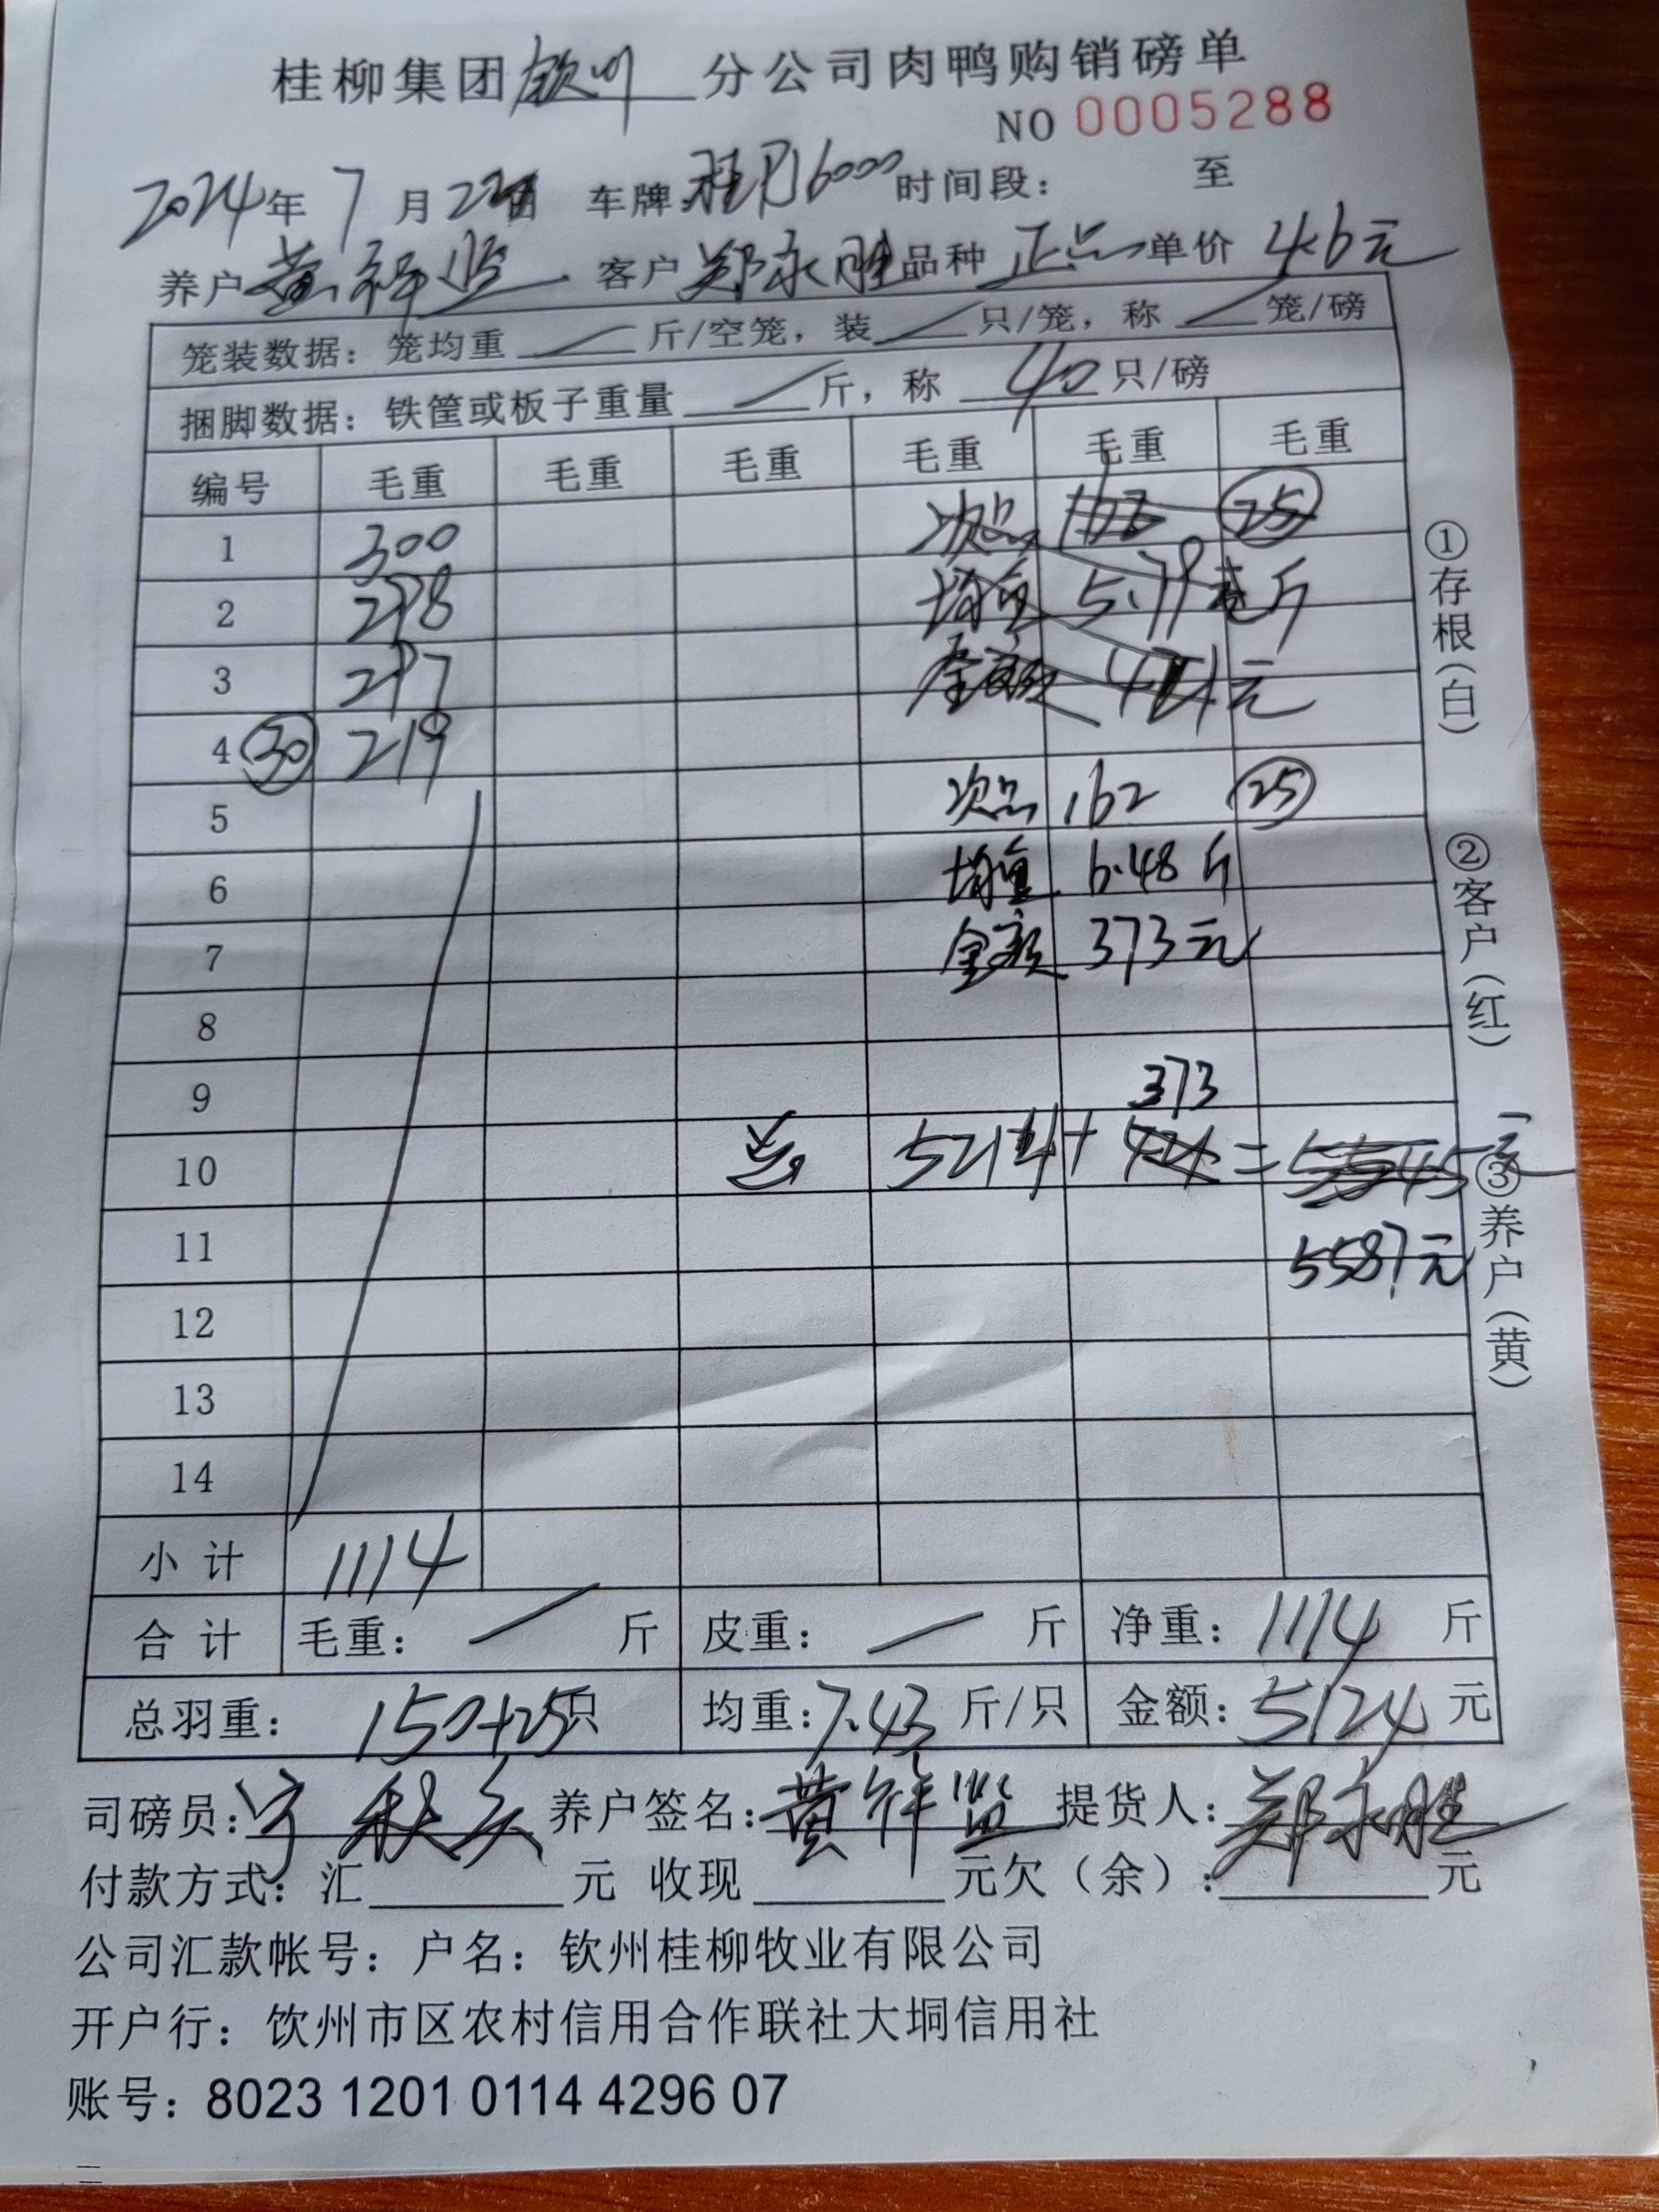 桂柳集团钦州分公司肉鸭购销磅单
NO 0005288
2024年7月22日 车牌 桂N16000 时间段： 至
养户 黄祥监 客户 郑永胜 品种 正品 单价 4.6元
笼装数据：笼均重 斤/空笼，装 只/笼，称 笼/磅
捆脚数据：铁筐或板子重量 斤，称 40 只/磅
编号 毛重 毛重 毛重 毛重 毛重 毛重
1 300 次品 25
2 298 均重 5.79 斤
3 297 金额 元
4 30 219
5 次品 162 25
6 均重 6.48 斤
7 金额 373元
8
9 373
10 总 5214+ 424 = 5545元
11 5587元
12
13
14
小计 1114
合计 毛重： 斤 皮重： 斤 净重：1114 斤
总羽重：150+25只 均重：7.43 斤/只 金额：5124 元
司磅员：宁秋 养户签名：黄祥监 提货人：郑永胜
付款方式：汇 元 收现 元欠（余）： 元
公司汇款帐号：户名：钦州桂柳牧业有限公司
开户行：饮州市区农村信用合作联社大垌信用社
账号：8023 1201 0114 4296 07
①存根（白）
②客户（红）
③养户（黄）